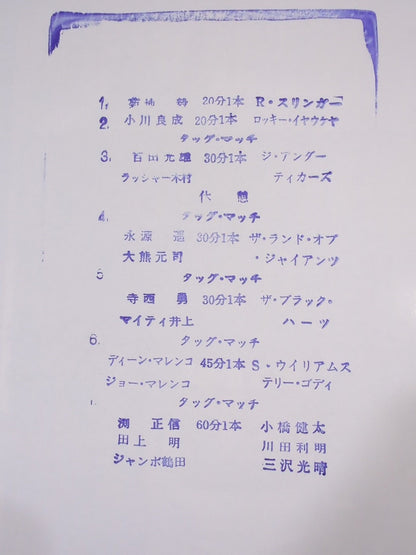 1. 菊地 毅 20分1本 R・スリンガー
2. 小川良成 20分1本 ロッキー・イヤウケヤ
タッグ・マッチ
3. 百田光雄 30分1本 ジ・アンダー
ラッシャー木村 ティカーズ
休憩
4. タッグ・マッチ
永源 遥 30分1本 ザ・ランド・オブ
大熊元司 ・ジャイアンツ
5 タッグ・マッチ
寺西 勇 30分1本 ザ・ブラック・
マイティ井上 ハーツ
6. タッグ・マッチ
ディーン・マレンコ 45分1本 S・ウイリアムス
ジョー・マレンコ テリー・ゴディ
タッグ・マッチ
渕 正信 60分1本 小橋健太
田上 明 川田利明
ジャンボ鶴田 三沢光晴